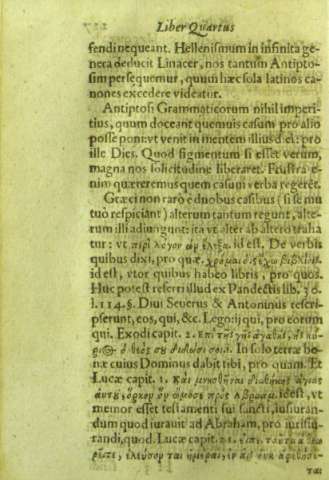 Liber Quartus
fendi nequeant. Hellenismum in infinita ge-
nera deducit Linacer, nos tantum Antipto-
sim persequemur, quum hæc sola latinos ca-
nones excedere videatur.
Antiptosi Grammaticorum nihil imperi-
tius, quum doceant quemuis casum pro alio
posse poni: vt venit in mentem illius diei: pro
ille Dies. Quod figmentum si esset verum,
magna nos solicitudine liberaret. Frustra e-
nim quæreremus quem casum verba regerẽt.
Græci non raro è duobus casibus (si se mu
tuò respiciant) alterum tantum regunt, alte-
rum illi adiungunt: ita vt alter ab altero traha
tur: vt περὶ λόγων ὧν ἔλεξα. id est. De verbis
quibus dixi, pro quæ. χρῶμαι οἷς ἔχω βιβλίοις.
id est, vtor quibus habeo libris, pro quos.
Huc potest referri illud ex Pandectis lib.
l. 114. §. Diui Seuerus & Antoninus rescri-
pserunt, eos, qui, &c. Lego ij qui, pro eorum
qui. Exodi capit. 2. Ἐπὶ τῆς γῆς ἀγαθῆς, ἧς κύ-
ριος ὁ θεός σου δίδωσί σοι. In solo terræ bo-
næ cuius Dominus dabit tibi, pro quam. Et
Lucæ capit. 1. Καὶ μνησθῆναι διαθήκης ἁγίας
αυτου, ὅρκον ὃν ὤμοσε πρὸς Ἀβραάμ. id est, vt
memor esset testamenti sui sancti, iusiurãn-
dum quod iurauit ad Abraham, pro iurisiu-
randi, quod. Lucæ capit. 21. ταῦτα ἃ θεω
ρεῖτε, ἐλεύσονται ἡμέραι, ἐν αἷς οὐκ ἀφεθήσε-
ται